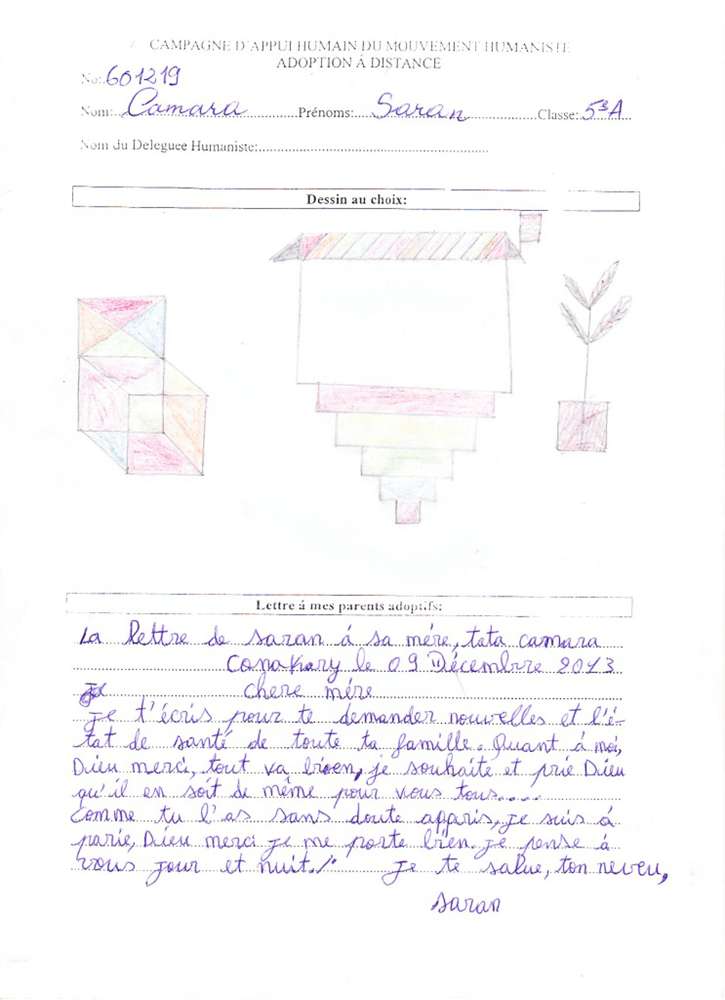 CAMPAGNE D'APPUI HUMAIN DU MOUVEMENT HUMANISTE
ADOPTION Á DISTANCE
No: 601219
Nom: Camara Prénoms: Saran Classe: 5è A
Nom du Deleguee Humaniste:
Dessin au choix:
Lettre á mes parents adoptifs:
La lettre de saran á sa mére, tata camara
Conakary le 09 Décembre 2013
je chere mére
je t'écris pour te demander nouvelles et l'é-
tat de santé de toute ta famille. Quant á moi,
Dieu merci, tout va bien, je souhaite et prie Dieu
qu'il en soit de même pour vous tous....
Comme tu l'as sans doute appris, je suis á
parie, Dieu merci je me porte bien. je pense á
vous jour et nuit./. je te salue, ton neveu,
saran